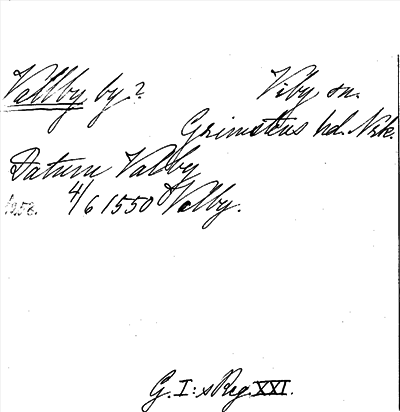 Vallby by? Viby sn.
Grimstens hd. Nrke.
Datum Valby
4/6 1550 Valby.
G. I:s Reg. XXI.